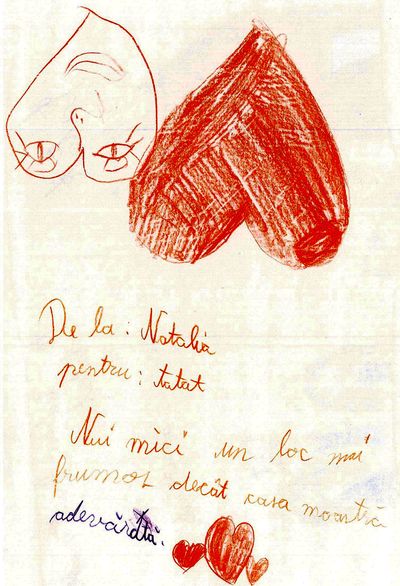 De la : Natalia
pentru : tatat
Nui mici un loc mai
frumos decât casa noastră
adevărată.